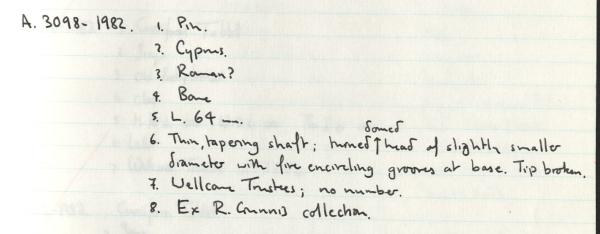 A. 3098-1982. 1. Pin.
2. Cyprus.
3. Roman?
4. Bone
5. L. 64 mm.
domed
6. Thin, tapering shaft; turned ↑ head of slightly smaller
diameter with five encircling grooves at base. Tip broken.
7. Wellcome Trustees; no number.
8. Ex R. Gunnis collection.